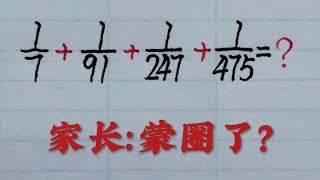 1/7 + 1/91 + 1/247 + 1/475 = ?
家长:蒙圈了?